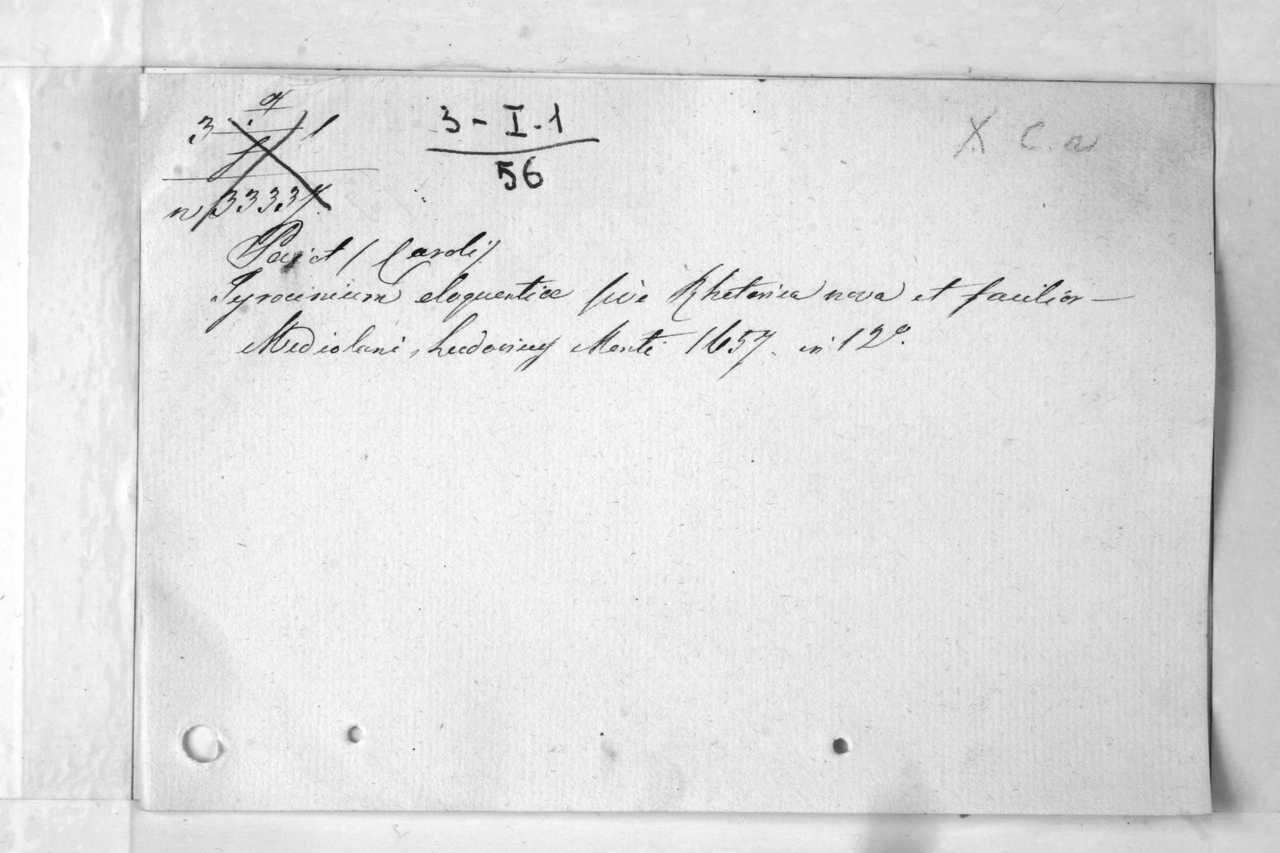 3 - I. 1
56
X C. a
3 1
n 3333
Pajot / Caroli /
Tyrocinium eloquentiæ sive Rhetorica nova et facilior —
Mediolani, Ludovicus Monti 1657. in 12º.